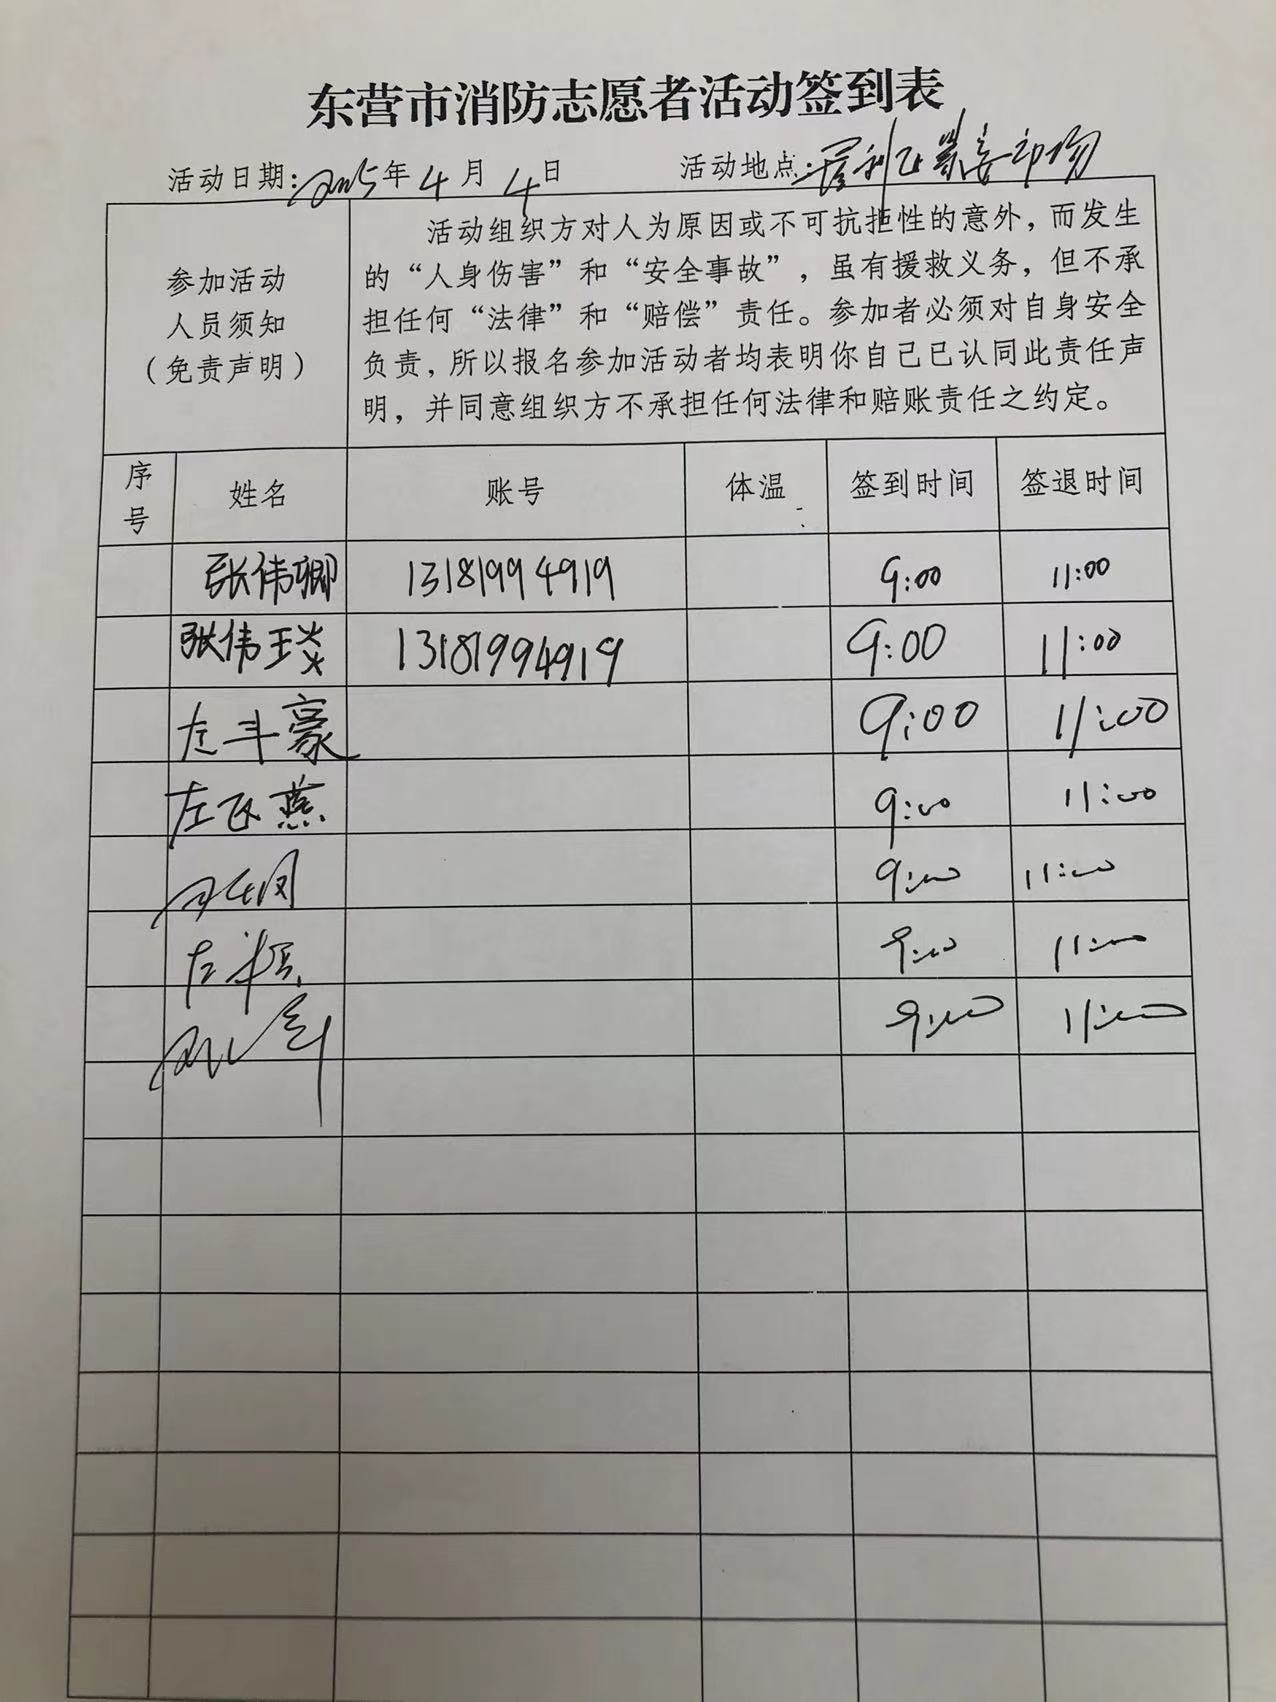 东营市消防志愿者活动签到表
活动日期:2025年4月4日 活动地点:
参加活动
人员须知
(免责声明)
活动组织方对人为原因或不可抗拒性的意外,而发生
的“人身伤害”和“安全事故”,虽有援救义务,但不承
担任何“法律”和“赔偿”责任。参加者必须对自身安全
负责,所以报名参加活动者均表明你自己已认同此责任声
明,并同意组织方不承担任何法律和赔账责任之约定。
序号 姓名 账号 体温 签到时间 签退时间
张伟卿 13181994919 9:00 11:00
张伟琰 13181994919 9:00 11:00
左斗豪 9:00 11:00
左飞燕 9:00 11:00
9:00 11:00
9:00 11:00
9:00 11:00